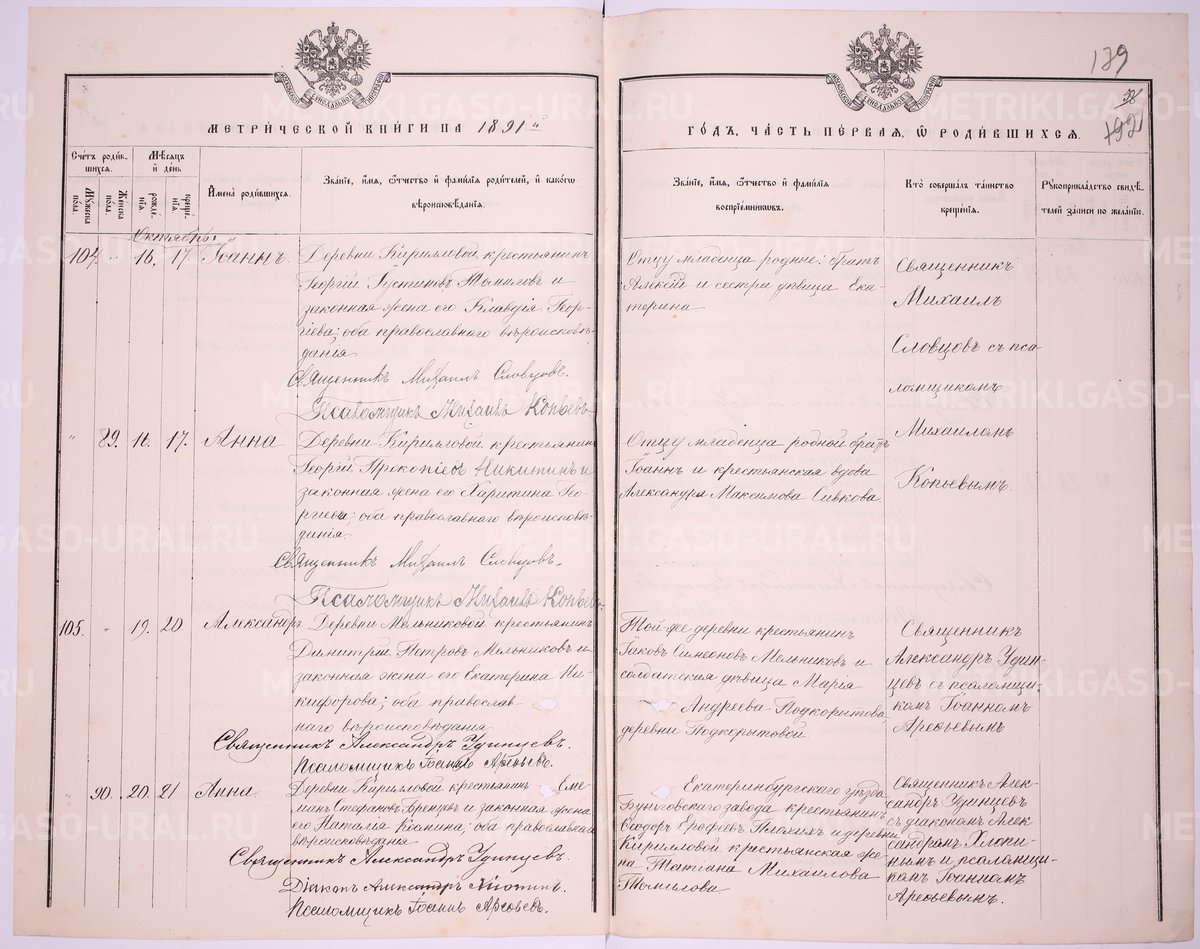 179
192
МЕТРИ́ЧЕСКОЙ КНИ́ГИ НА 1891 й
ГО́ДЪ, ЧА́СТЬ ПЕ́РВАЯ, Ѡ РОДИ́ВШИХСЯ.
Сче́тъ роди́вшихся.
Му́жеска пола.
Же́нска пола.
Мѣ́сяцъ и҆ день
рожде́нїя.
креще́нїя.
И҆мена̀ роди́вшихся.
Зва́нїе, и҆́мя, ѻ҆́тчество и҆ фами́лїя роди́телей, и҆ како́гѡ
вѣроисповѣ́данїя.
Зва́нїе, и҆́мя, ѻ҆́тчество и҆ фами́лїя
воспрїе́мниковъ.
Кто̀ соверша́лъ та́инство
креще́нїя.
Рꙋкоприкла́дство свидѣ́-
телей за́писи по жела́нїю.
Октябрь
104. " 16. 17. Іоаннъ.
Деревни Кирилловой крестьянинъ
Георгій Іустиновъ Томиловъ и
законная жена его Клавдія Геор-
гіева; оба православнаго вѣроисповѣ-
данія.
Священникъ Михаилъ Словцовъ.
Псаломщикъ Михаилъ Копьевъ
Отцу младенца родные: братъ
Алексій и сестра дѣвица Ека-
терина
Священникъ
Михаилъ
Словцовъ съ пса-
ломщикомъ
Михаиломъ
Копьевымъ.
" 89. 16. 17. Анна
Деревни Кирилловой крестьянинъ
Георгій Прокопіевъ Никитинъ и
законная жена его Харитина Гео-
ргіева; оба православнаго вѣроисповѣ-
данія.
Священникъ Михаилъ Словцовъ.
Псаломщикъ Михаилъ Копьевъ
Отцу младенца родной братъ
Іоаннъ и крестьянская вдова
Александра Максимова Сивкова
105. " 19. 20. Александръ.
Деревни Мельниковой крестьянинъ
Димитрій Петровъ Мельниковъ и
законная жена его Екатерина Ни-
кифорова; оба православ-
наго вѣроисповѣданія
Священникъ Александръ Удинцевъ.
Псаломщикъ Іоаннъ Арефьевъ.
Той же деревни крестьянинъ
Іаковъ Симеоновъ Мельниковъ и
солдатская дѣвица Марія
Андреева Подкорытова
деревни Подкорытовой.
Священникъ
Александръ Удин-
цевъ съ псаломщи-
комъ Іоанномъ
Арефьевымъ
" 90. 20. 21 Анна.
Деревни Кирилловой крестьянинъ Сте-
фановъ и законная жена
его Наталія Козмина; оба православнаго
вѣроисповѣданія
Священникъ Александръ Удинцевъ.
Діаконъ Александръ
Псаломщикъ Іоаннъ Арефьевъ.
Екатеринбургскаго уѣзда
заво́да крестьянинъ
Ѳеодоръ Ерофеевъ Плохихъ и деревни
Кирилловой крестьянская же-
на Татіана Михаилова
Томилова
Священникъ Алек-
сандръ Удинцевъ
съ діакономъ Алек-
сандромъ Хлопи-
нымъ и псаломщи-
комъ Іоанномъ
Арефьевымъ.
METRIKI.GASO-URAL.RU